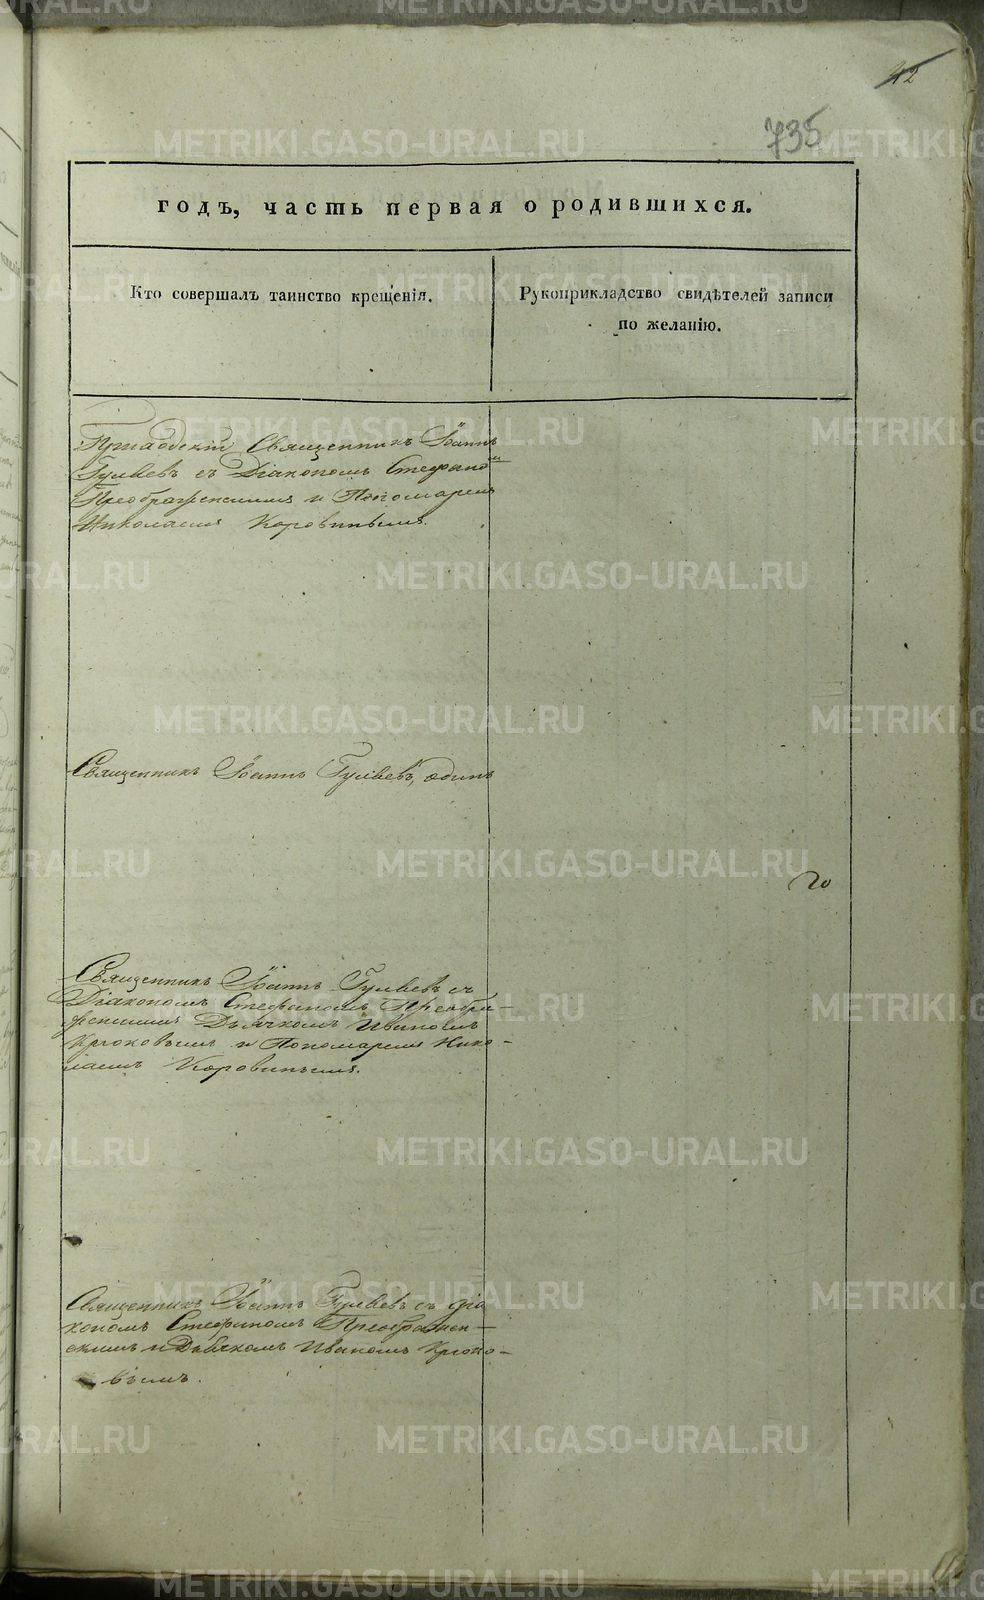 42
735
годъ, часть первая о родившихся.
Кто совершалъ таинство крещенія.
Рукоприкладство свидѣтелей записи
по желанію.
Священникъ Іоаннъ
Гуляевъ съ Діакономъ Стефаномъ
Преображенскимъ и Пономаремъ
Николаемъ Коровинымъ.
Священникъ Іоаннъ Гуляевъ, одинъ
Священникъ Іоаннъ Гуляевъ съ
Діакономъ Стефаномъ Преобра-
женскимъ Дьячкомъ Иваномъ
Крюковымъ и Пономаремъ Нико-
лаемъ Коровинымъ.
Священникъ Іоаннъ Гуляевъ съ діа
кономъ Стефаномъ Преображен-
скимъ и Дьячкомъ Иваномъ Крюко-
вымъ.
METRIKI.GASO-URAL.RU